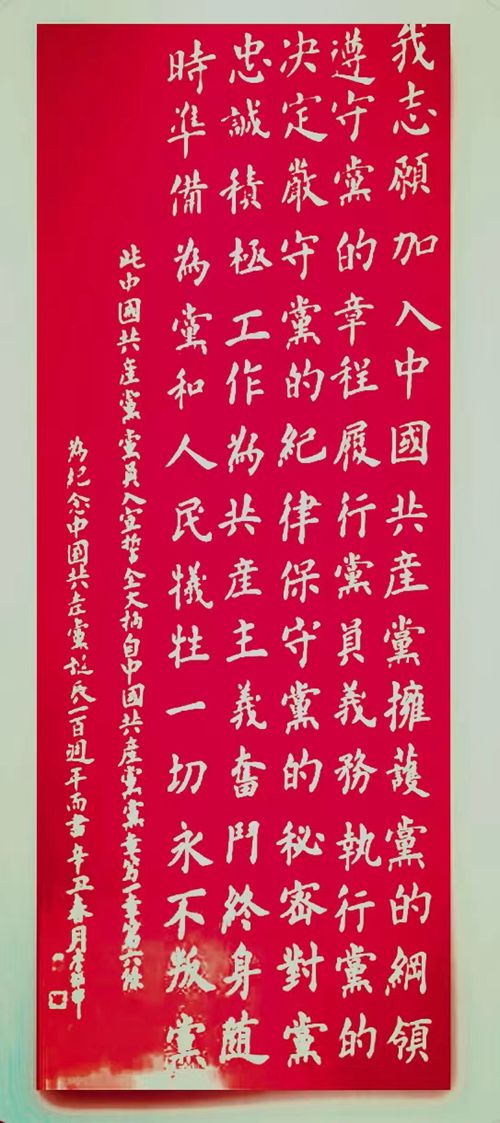 我志願加入中國共産黨擁護黨的綱領
遵守黨的章程履行黨員義務執行黨的
决定嚴守黨的紀律保守黨的秘密對黨
忠誠積極工作為共産主義奮鬥終身随
時準備為黨和人民犧牲一切永不叛黨
此中國共産黨黨員入宣誓全文摘自中國共産黨黨章第一章第六條
為纪念中国共产黨誕辰一百週年而書辛丑春月